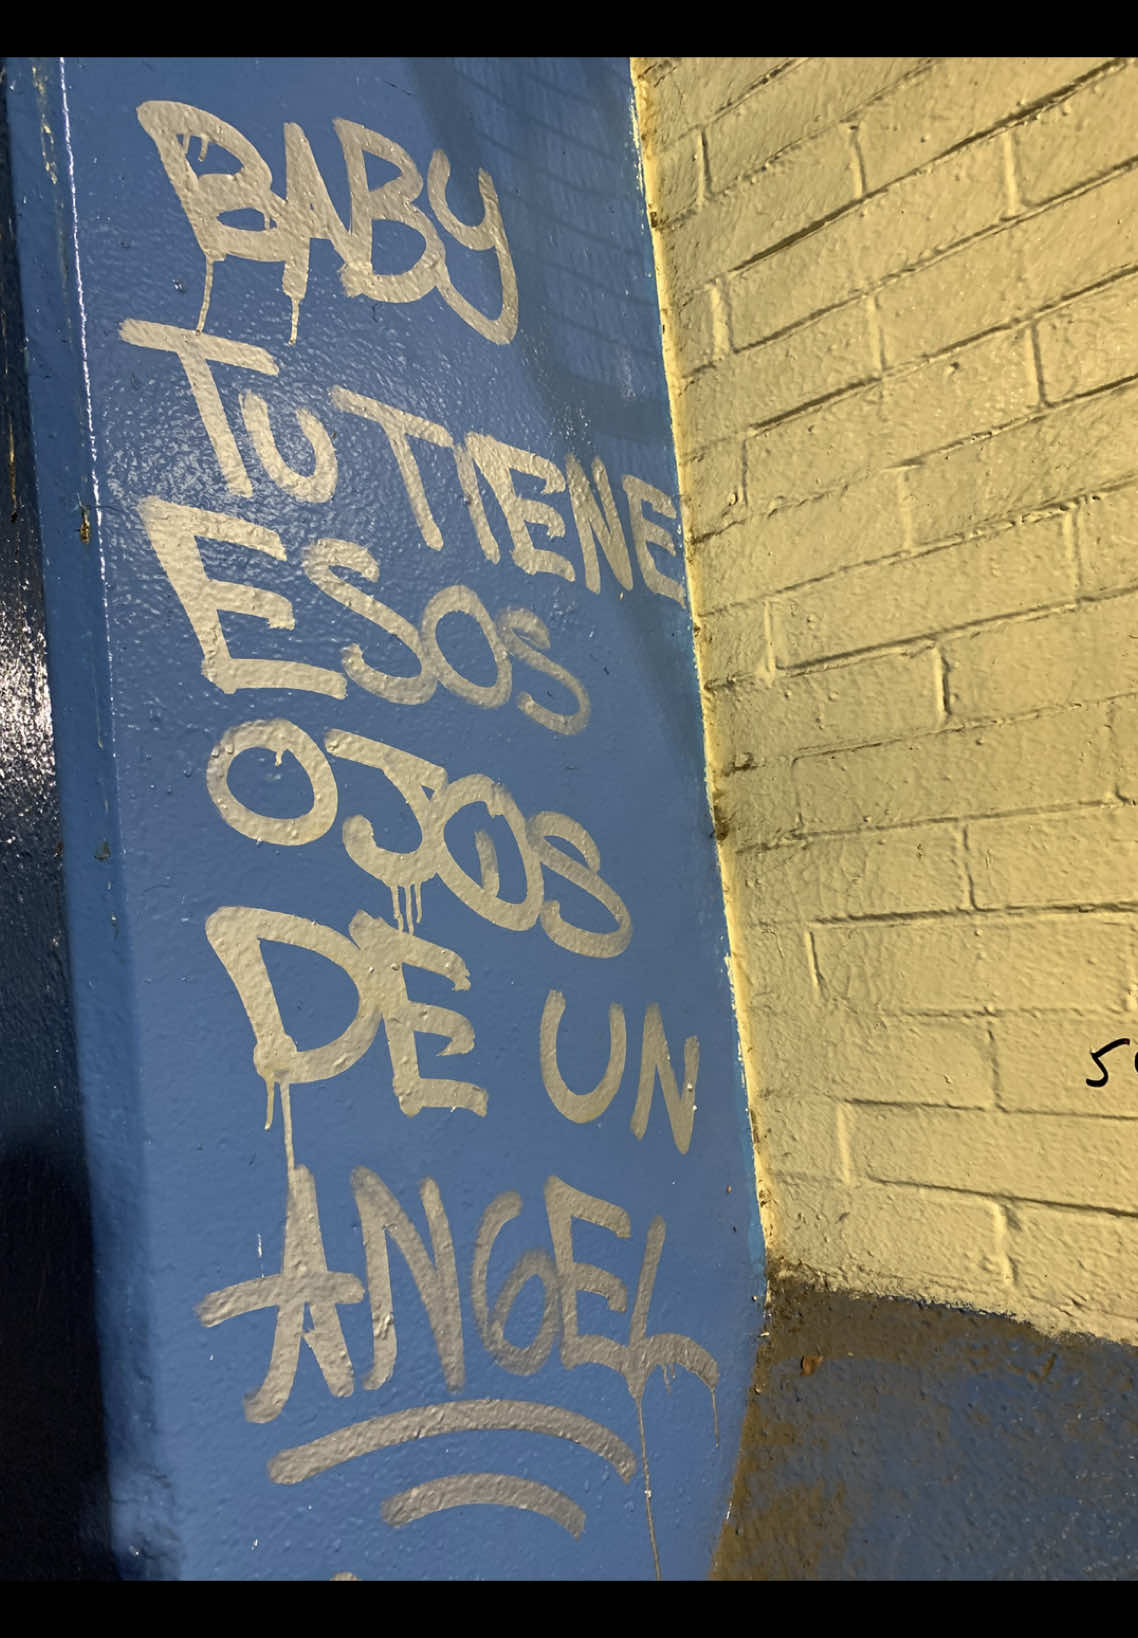 BABY
TU TIENE
ESOS
OJOS
DE UN
ANGEL